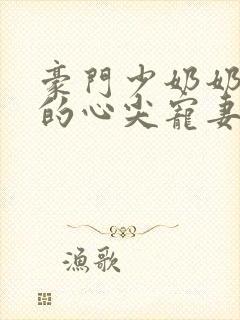 豪門少奶奶
的心尖寵妻
漁歌